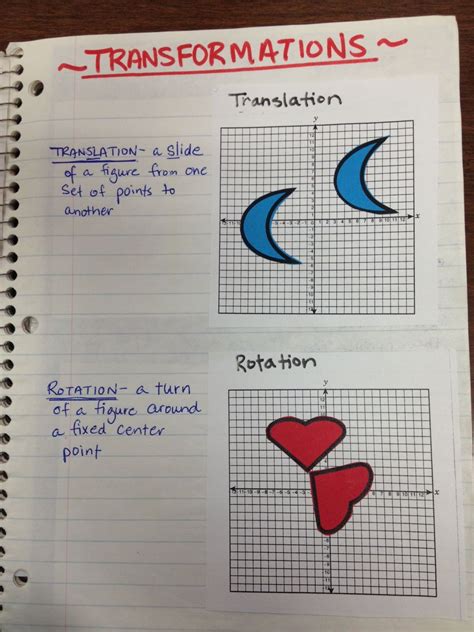 ~TRANSFORMATIONS~
Translation
TRANSLATION- a Slide
of a figure from one
Set of points to
another
y
x
Rotation
ROTATION- a turn
of a figure around
a fixed center
point
y
x